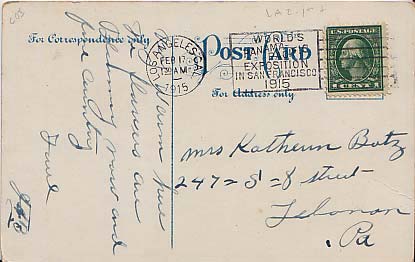 For Correspondence only
POST CARD
For Address only
LOS ANGELES, CAL.
FEB 17
130 AM
1915
WORLD'S
PANAMA-PACIFIC
EXPOSITION
IN SAN FRANCISCO
1915
U.S. POSTAGE
1 CENT 1
Warm here
flowers are
blooming now and
fine
Mrs Katherin Botz
247 = S = 8 street
Lebanon
Pa